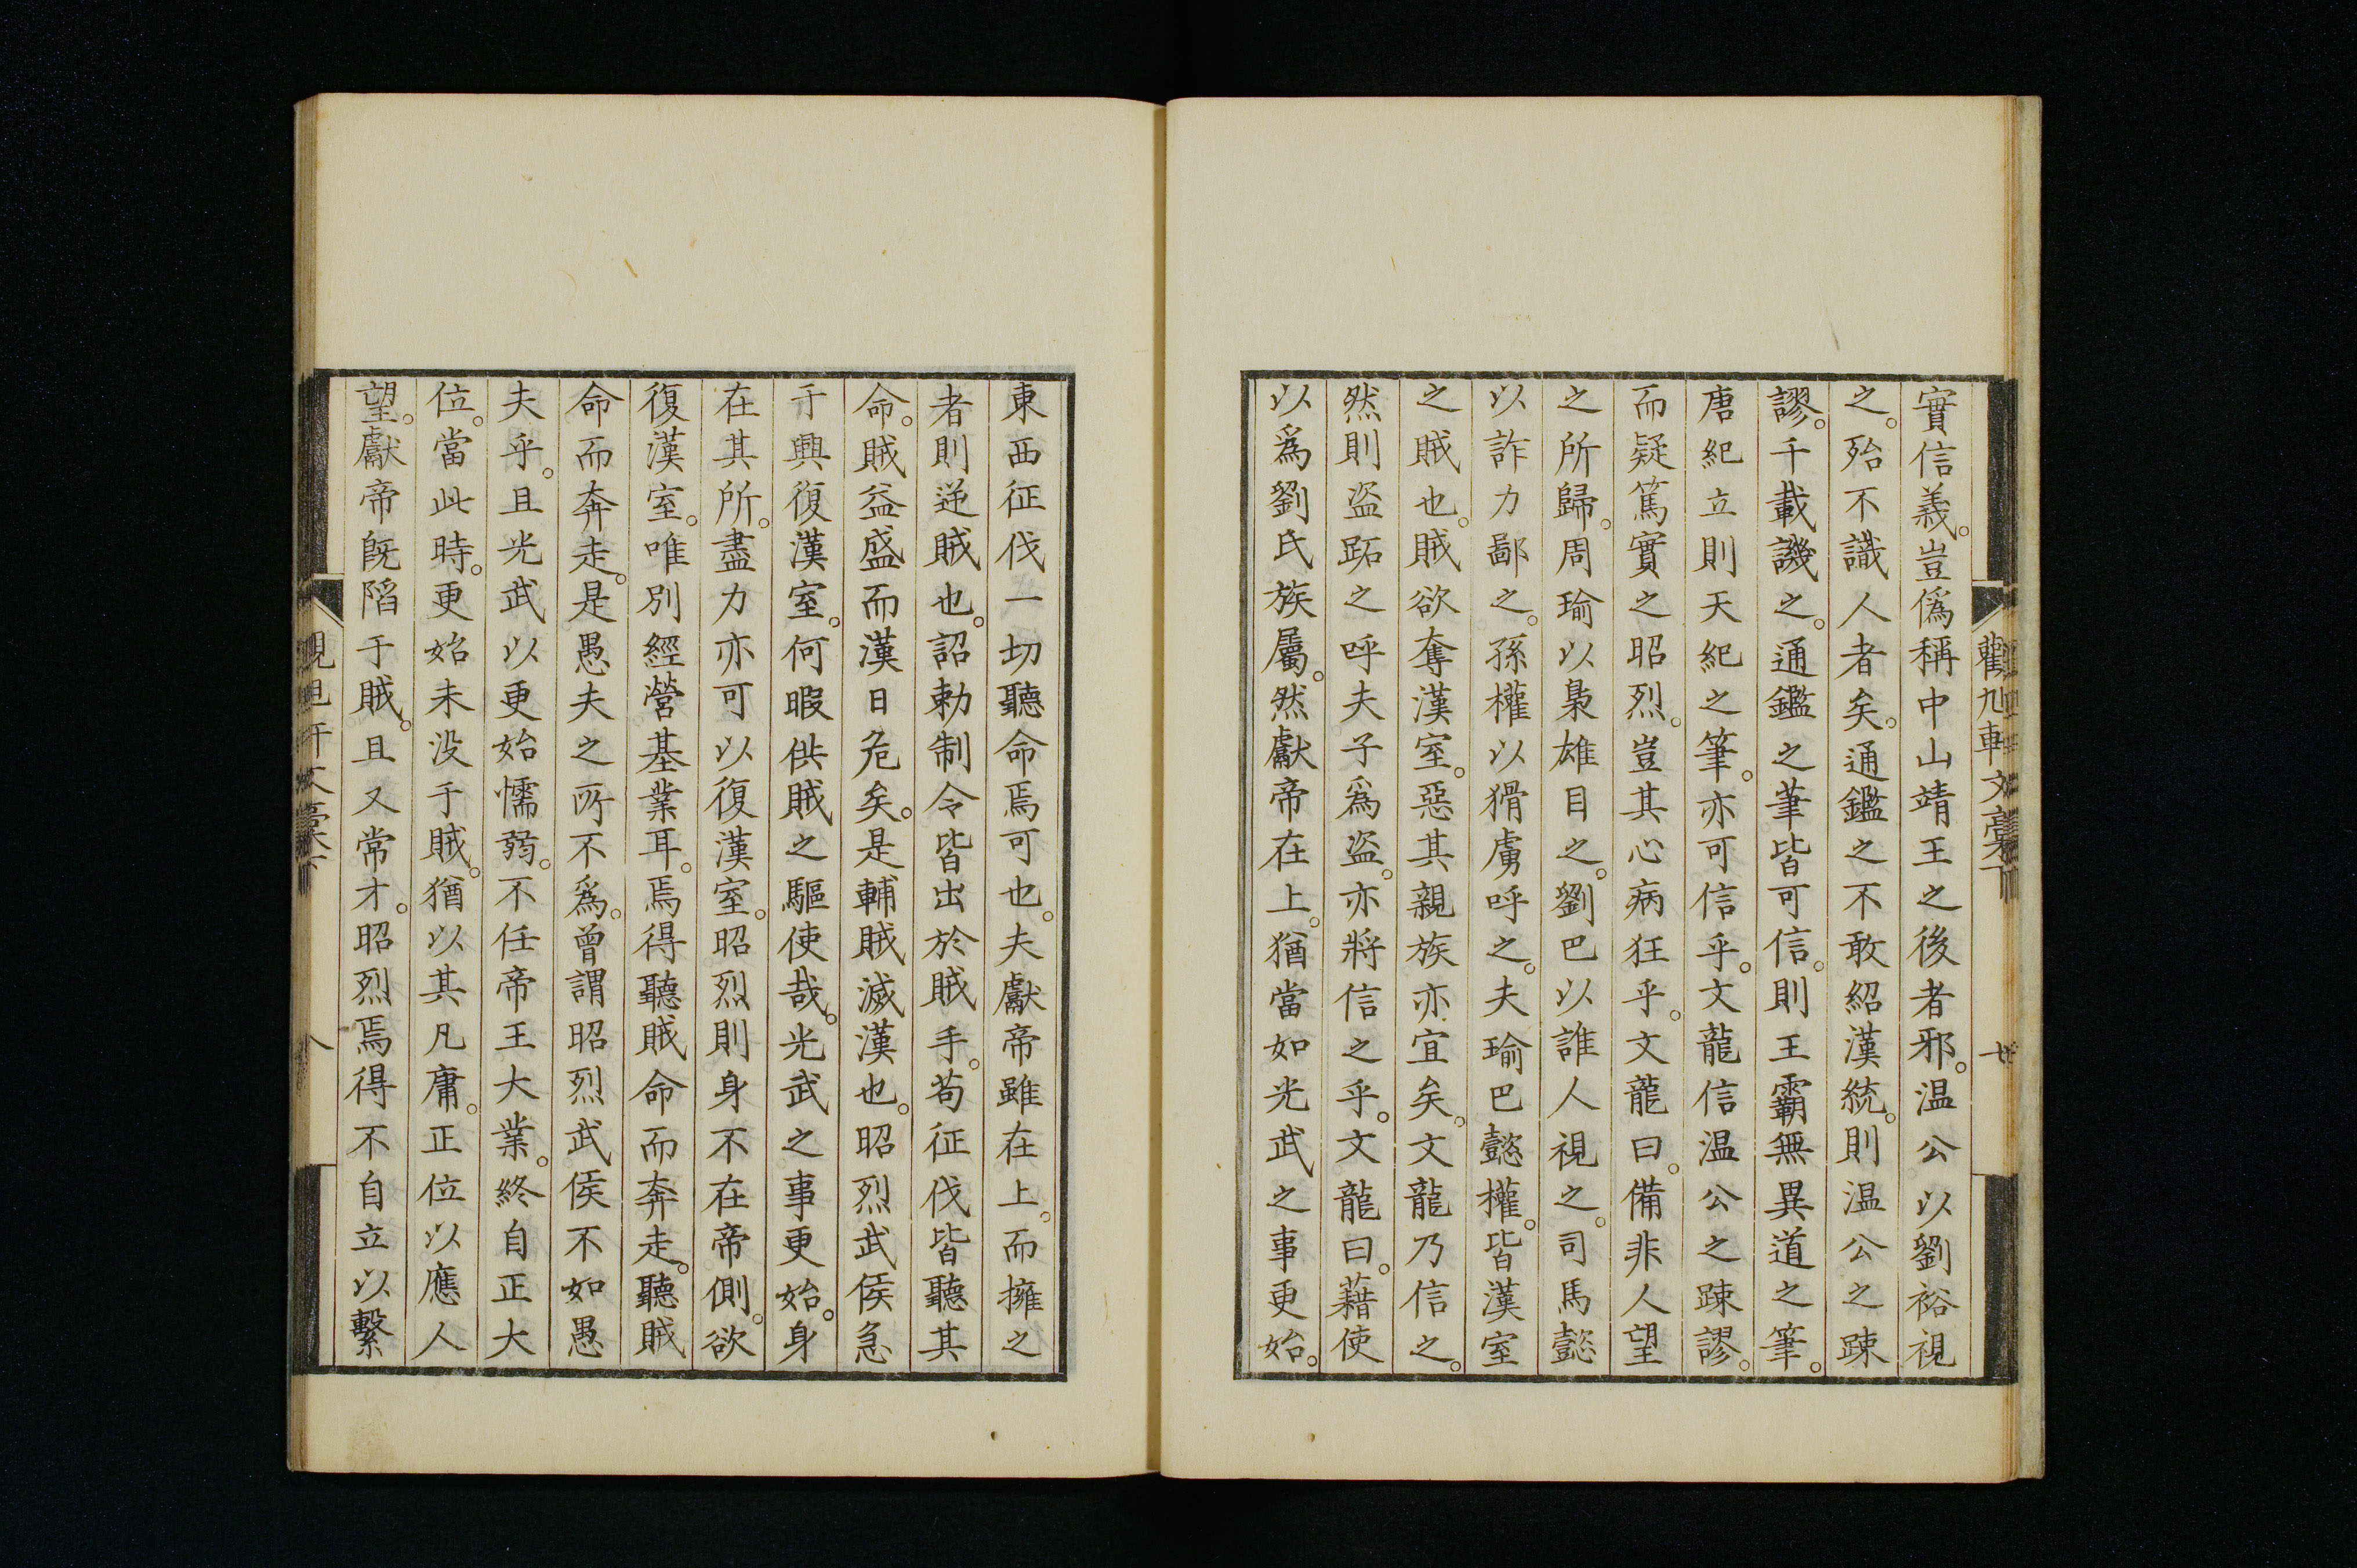 觀旭軒文稾下
廿
實信義。豈僞稱中山靖王之後者邪。温公以劉裕視
之。殆不識人者矣。通鑑之不敢紹漢統。則温公之踈
謬。千載譏之。通鑑之筆皆可信。則王霸無異道之筆。
唐紀立則天紀之筆。亦可信乎。文龍信温公之踈謬。
而疑篤實之昭烈。豈其心病狂乎。文龍曰。備非人望
之所歸。周瑜以梟雄目之。劉巴以誰人視之。司馬懿
以詐力鄙之。孫權以猾虜呼之。夫瑜巴懿權。皆漢室
之賊也。賊欲奪漢室。惡其親族亦宜矣。文龍乃信之。
然則盗跖之呼夫子爲盗。亦將信之乎。文龍曰。藉使
以爲劉氏族屬。然獻帝在上。猶當如光武之事更始。
東西征伐一切聽命焉可也。夫獻帝雖在上。而擁之
者則逆賊也。詔勅制令皆出於賊手。苟征伐皆聽其
命。賊益盛而漢日危矣。是輔賊滅漢也。昭烈武侯急
于興復漢室。何暇供賊之驅使哉。光武之事更始。身
在其所。盡力亦可以復漢室。昭烈則身不在帝側。欲
復漢室。唯別經營基業耳。焉得聽賊命而奔走。聽賊
命而奔走。是愚夫之所不爲。曾謂昭烈武侯不如愚
夫乎。且光武以更始懦弱。不任帝王大業。終自正大
位。當此時。更始未没于賊。猶以其凡庸。正位以應人
望。獻帝旣陷于賊。且又常才。昭烈焉得不自立以繫